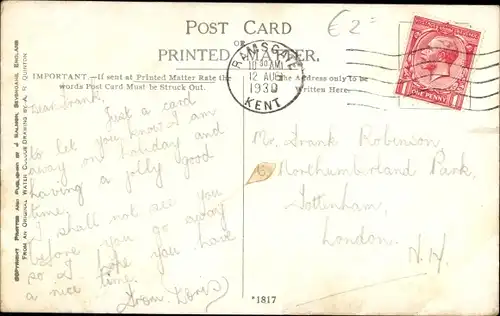 POST CARD
OR
PRINTED MATTER.
€ 2=
RAMSGATE
10 30 AM
12 AUG
1930
KENT
ONE PENNY
IMPORTANT.—If sent at Printed Matter Rate the
words Post Card must be Struck Out.
The Address only to be
Written Here.
Dear Frank.
Just a card
to let you know I am
away on holiday and
having a jolly good
time.
I shall not see you
before you go away
so I hope you have
a nice time.
From Doris
Mr. Frank Robinson
6 Northumberland Park,
Tottenham,
London.
N.
*1817
COPYRIGHT PRINTED AND PUBLISHED BY J SALMON, SEVENOAKS, ENGLAND
FROM AN ORIGINAL WATER COLOUR DRAWING BY A. R QUINTON